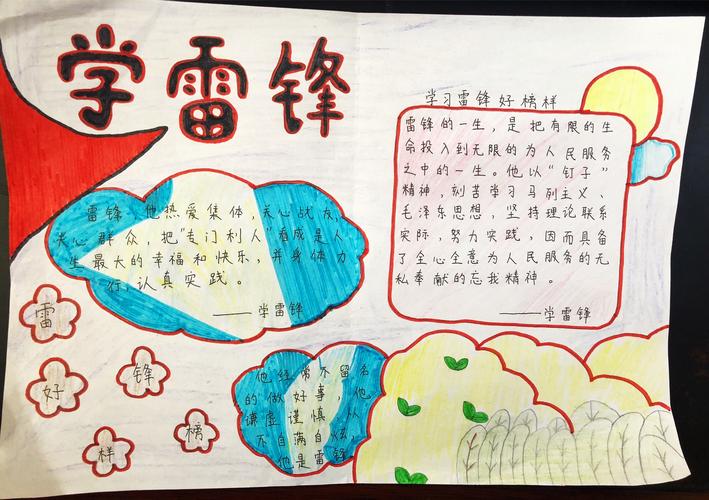 学雷锋
学习雷锋好榜样
雷锋的一生，是把有限的生
命投入到无限的为人民服务
之中的一生。他以“钉子”
精神，刻苦学习马列主义、
毛泽东思想，坚持理论联系
实际，努力实践，因而具备
了全心全意为人民服务的无
私奉献的忘我精神。
——学雷锋
雷锋，他热爱集体，关心战友，
关心群众，把“专门利人”看成是人
生最大的幸福和快乐，并身体力
行，认真实践。
——学雷锋
雷
锋
好
榜
样
他经常不留名
的做好事，他
谦虚谨慎，从
不自满自
他是雷锋